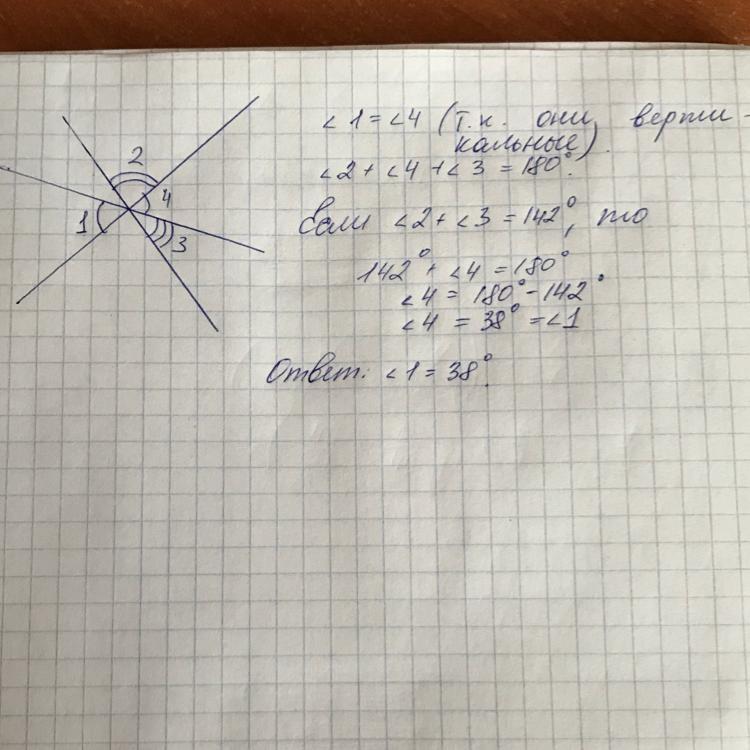 2
4
1
3
∠1 = ∠4 (т.к. они верти-
кальные).
∠2 + ∠4 + ∠3 = 180°.
Если ∠2 + ∠3 = 142°, то
142° + ∠4 = 180°
∠4 = 180° - 142°
∠4 = 38° = ∠1
Ответ: ∠1 = 38°.